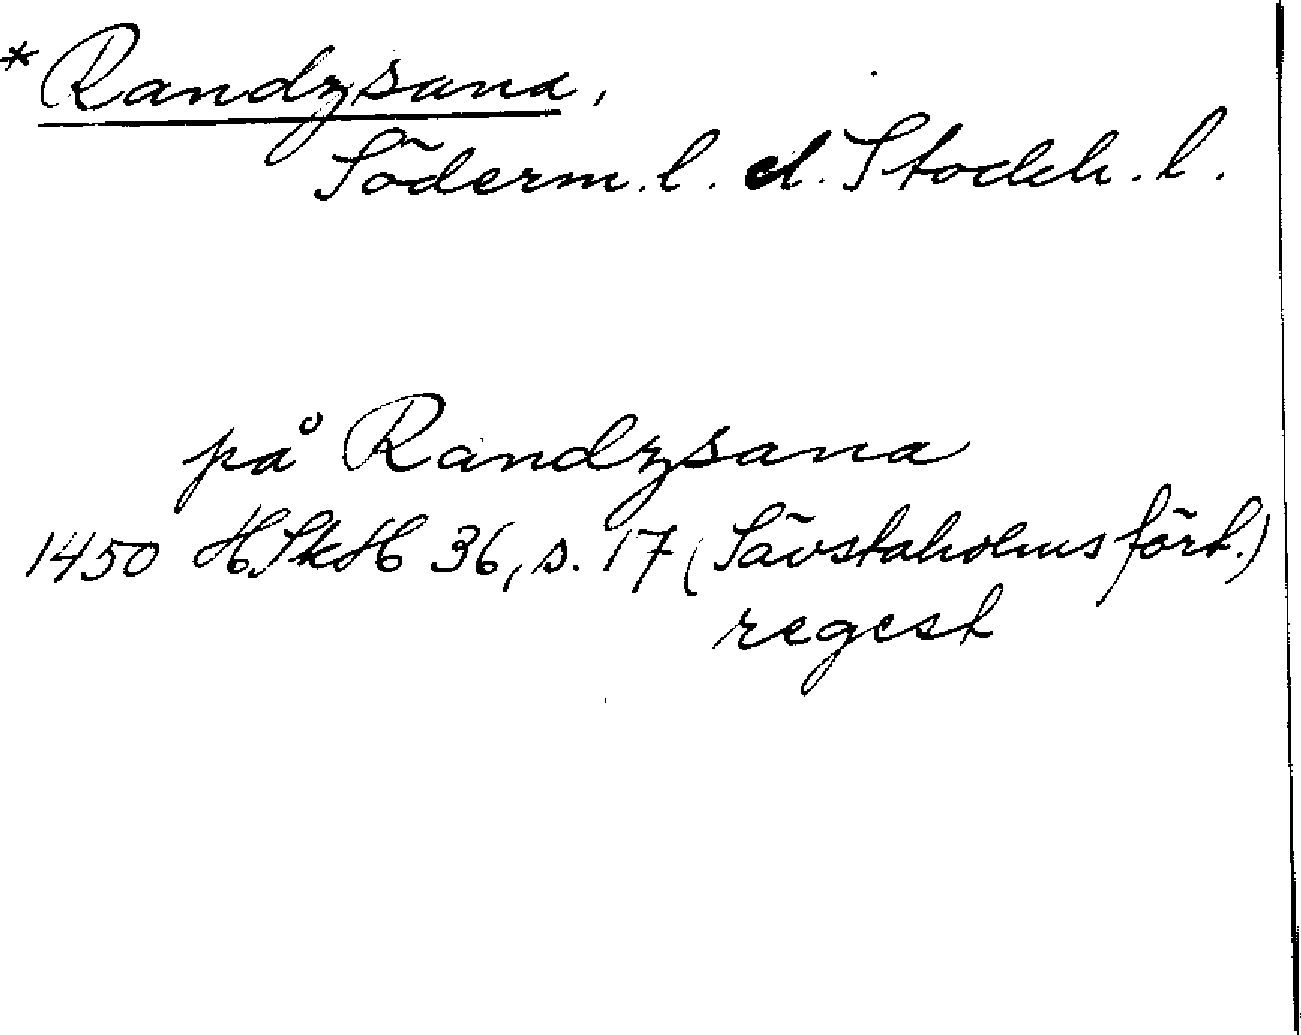 *Randzsana,
Söderm. l. el. Stockh. l.
på Randzsana
1450 HSkH 36, s. 17 (Sävstaholms fört.)
regest